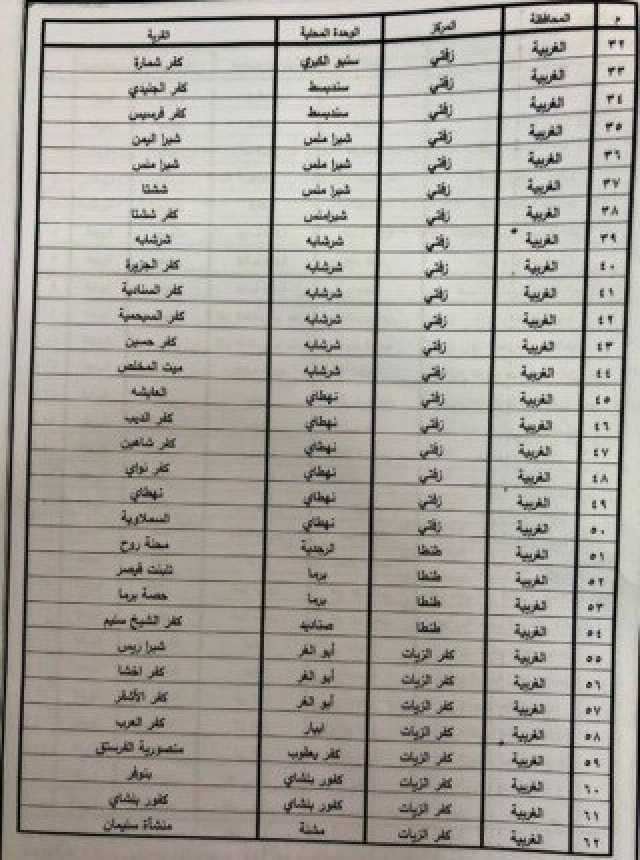 م المحافظة المركز الوحدة المحلية القرية
٣٢ الغربية زفتي سنبو الكبري كفر شمارة
٣٣ الغربية زفتي سندبسط كفر الجنيدي
٣٤ الغربية زفتي سندبسط كفر فرسيس
٣٥ الغربية زفتي شبرا ملس شبرا اليمن
٣٦ الغربية زفتي شبرا ملس شبرا ملس
٣٧ الغربية زفتي شبرا ملس ششتا
٣٨ الغربية زفتي شبراملس كفر ششتا
٣٩ الغربية زفتي شرشابه شرشابه
٤٠ الغربية زفتي شرشابه كفر الجزيرة
٤١ الغربية زفتي شرشابه كفر الصنادية
٤٢ الغربية زفتي شرشابه كفر السيحمية
٤٣ الغربية زفتي شرشابه كفر حسين
٤٤ الغربية زفتي شرشابه ميت المخلص
٤٥ الغربية زفتي نهطاي العايشه
٤٦ الغربية زفتي نهطاي كفر الديب
٤٧ الغربية زفتي نهطاي كفر شاهين
٤٨ الغربية زفتي نهطاي كفر نواي
٤٩ الغربية زفتي نهطاي نهطاي
٥٠ الغربية زفتي نهطاي السملاوية
٥١ الغربية طنطا الرجدية محلة روح
٥٢ الغربية طنطا برما تلبنت قيصر
٥٣ الغربية طنطا برما حصة برما
٥٤ الغربية طنطا صناديد كفر الشيخ سليم
٥٥ الغربية كفر الزيات أبو الغر شبرا ريس
٥٦ الغربية كفر الزيات أبو الغر كفر اخشا
٥٧ الغربية كفر الزيات أبو الغر كفر الأشقر
٥٨ الغربية كفر الزيات ابيار كفر العرب
٥٩ الغربية كفر الزيات كفر يعقوب منصورية الفرستق
٦٠ الغربية كفر الزيات كفور بلشاي بنوفر
٦١ الغربية كفر الزيات كفور بلشاي كفور بلشاي
٦٢ الغربية كفر الزيات مشلة منشأة سليمان